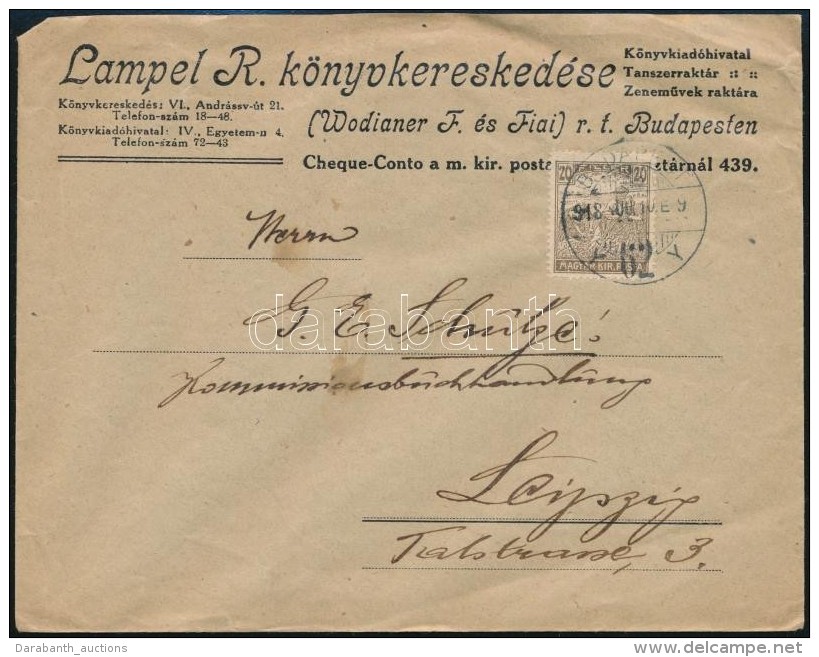 Lampel R. könyvkereskedése
Könyvkiadóhivatal
Tanszerraktár :: ::
Zeneművek raktára
Könyvkereskedés: VI., Andrássy-út 21.
Telefon-szám 18—48.
Könyvkiadóhivatal: IV., Egyetem-u 4.
Telefon-szám 72—43
(Wodianer F. és Fiai) r. t. Budapesten
Cheque-Conto a m. kir. posta ztárnál 439.
20 20
MAGYAR KIR. POSTA
62
Herrn
G. E. Schulze.
Kommissionsbuchhandlung
Leipzig
Talstrasse, 3.
darabanth
Darabanth_auctions
delcampe.net